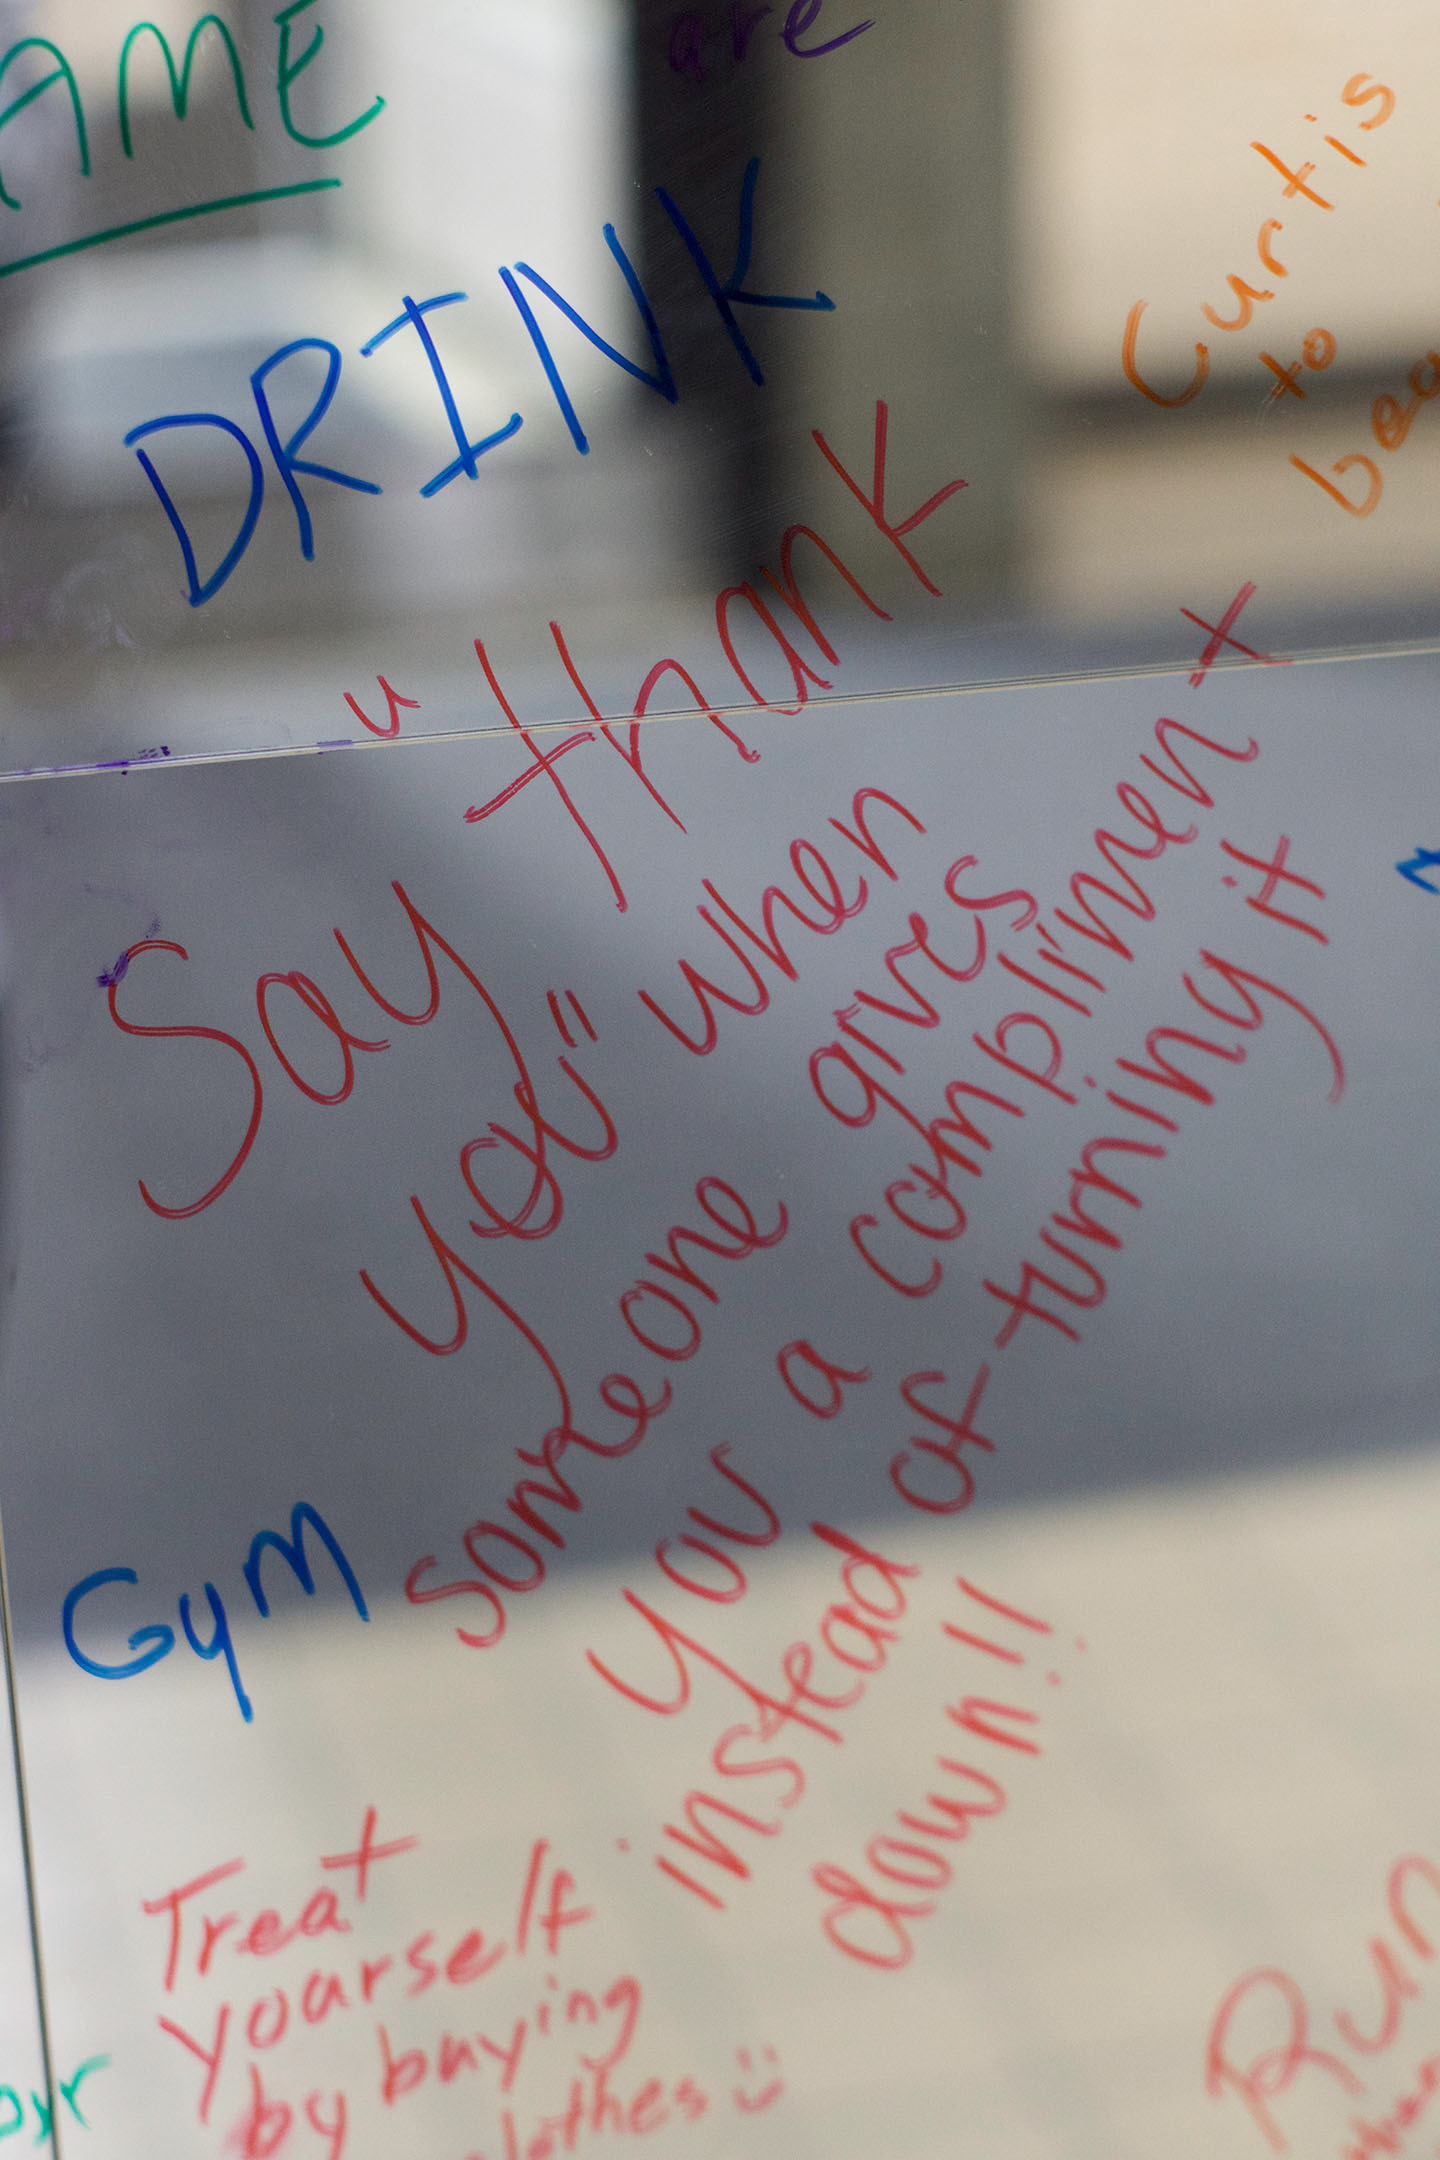 AME
are
DRINK
Curtis
to
"thank
Say
you" when
someone gives
you a compliment
instead of turning it
down!!
Gym
Treat
yourself
by buying
clothes
Run